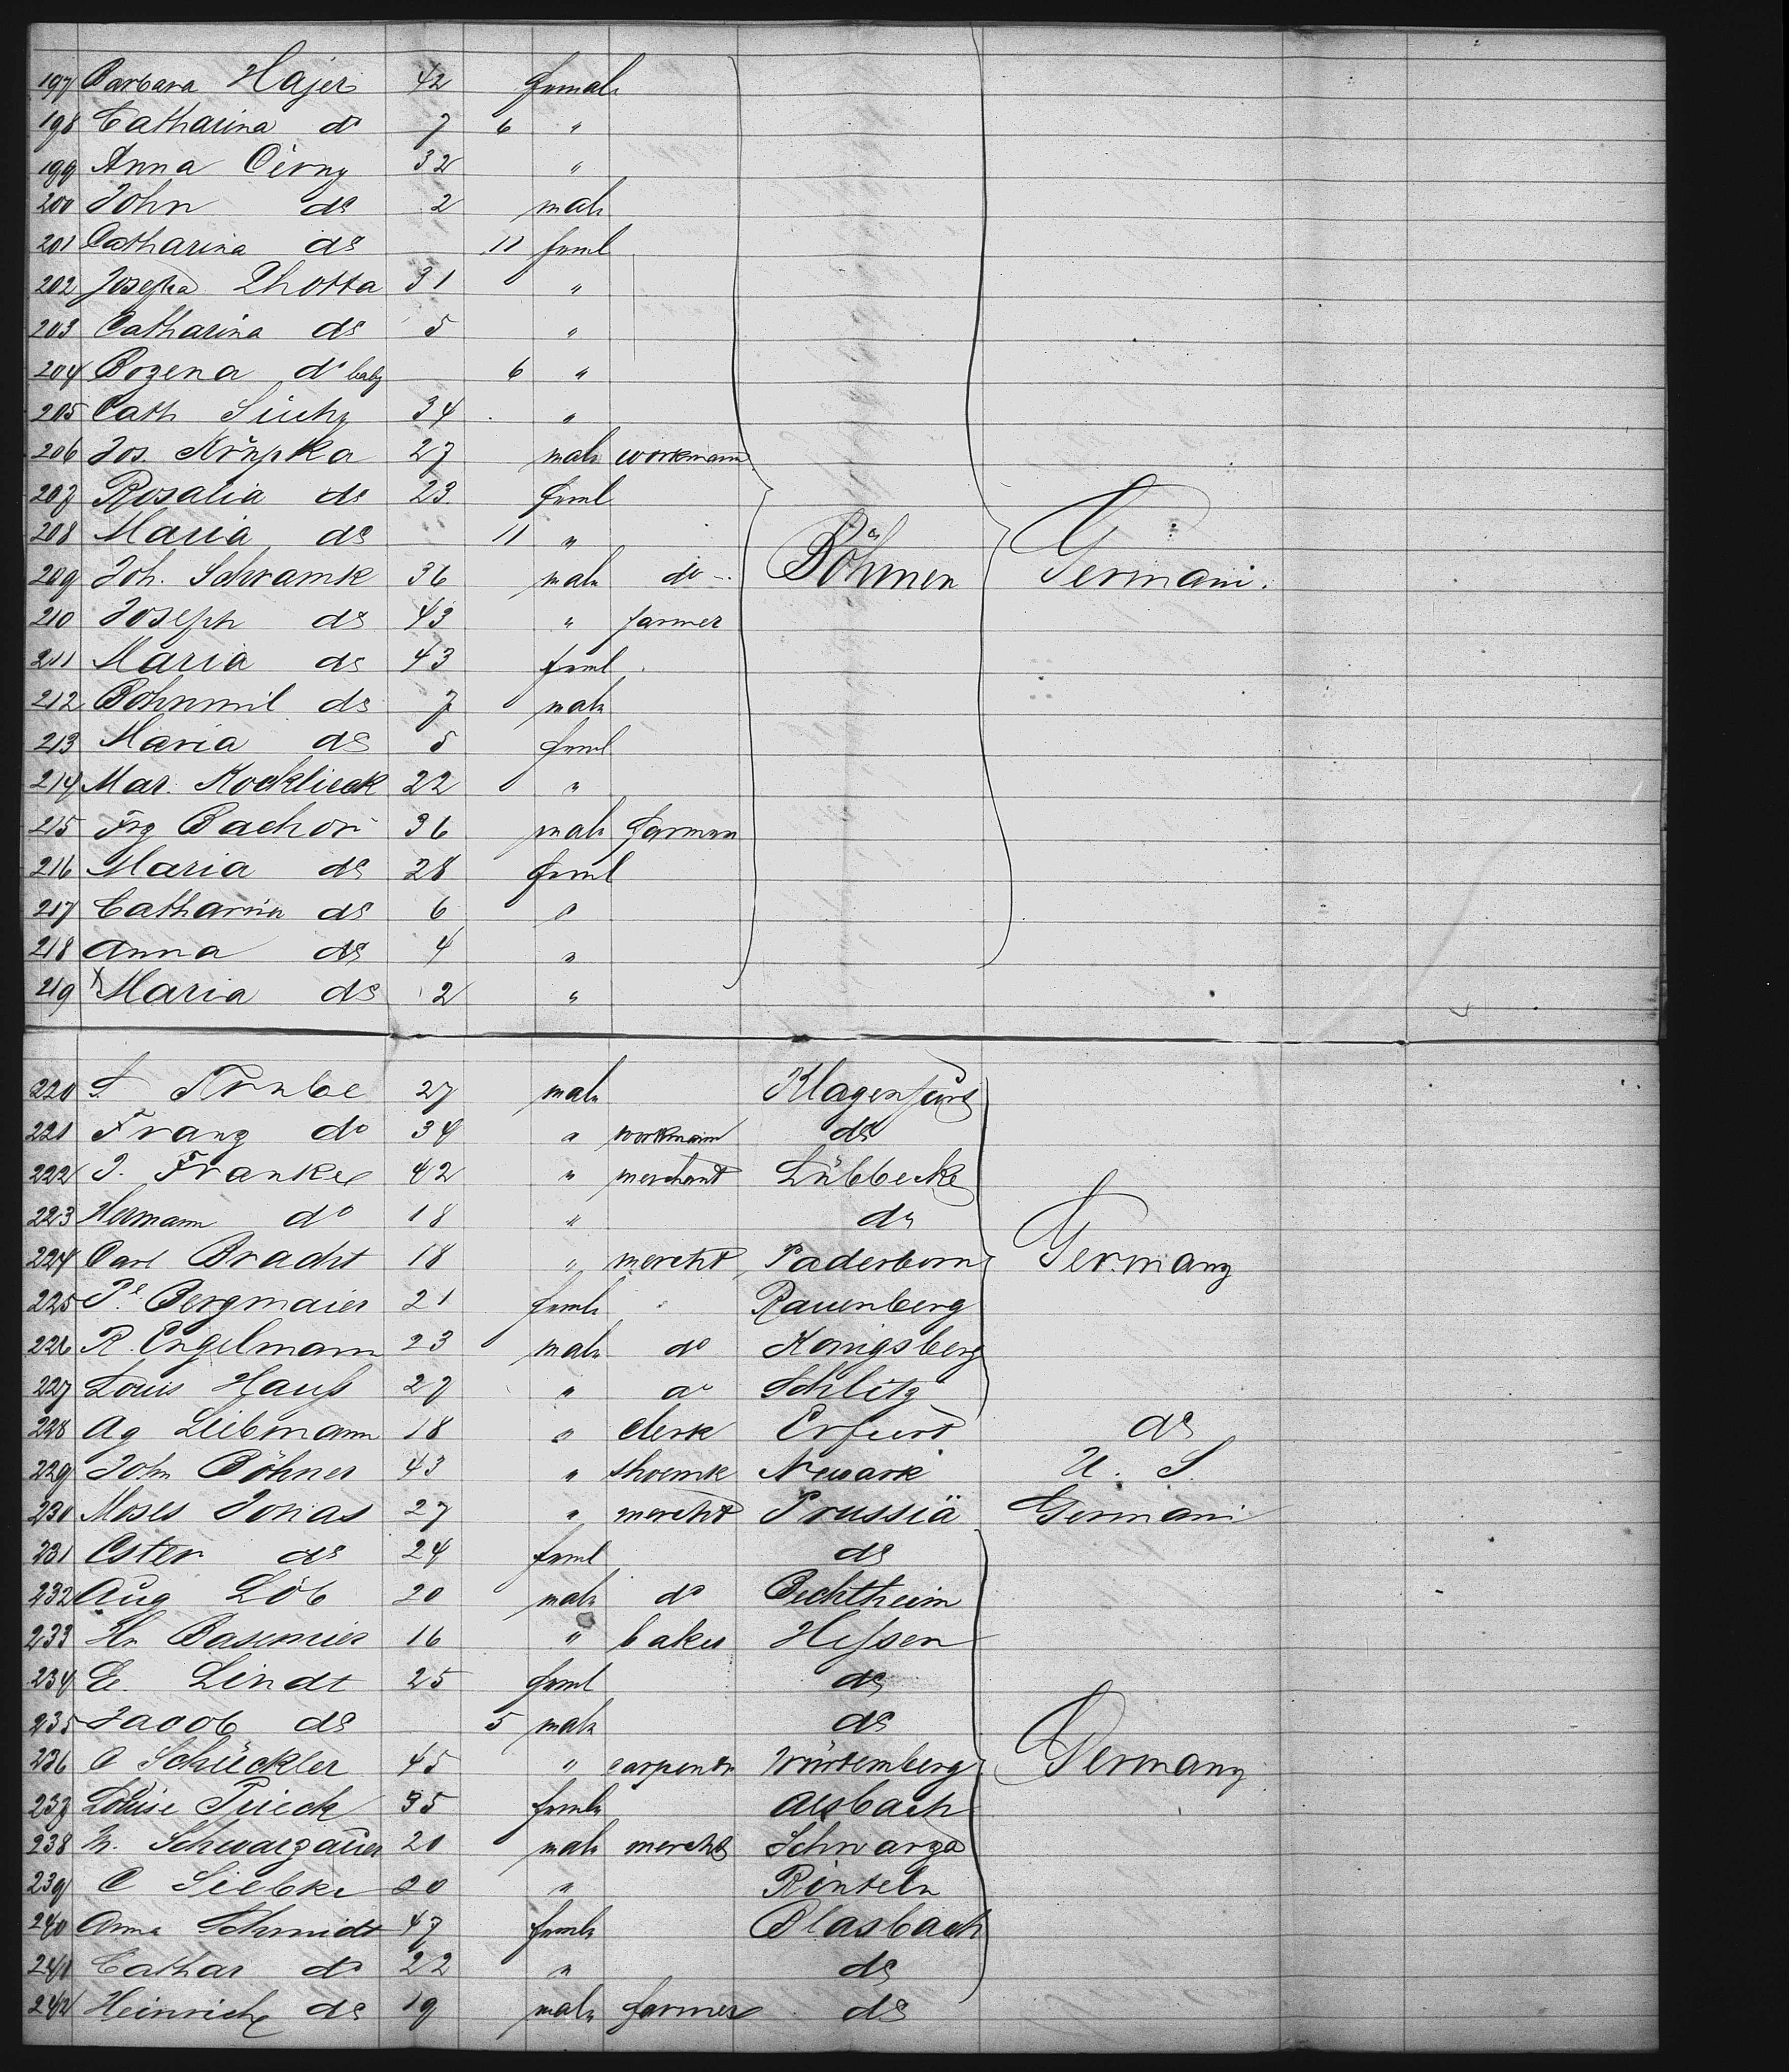 197 Barbara Hajer 42 female
198 Catharina do 7 6 "
199 Anna Cerny 32 "
200 John do 2 male
201 Catharina do 11 feml
202 Josepha Lhotta 31 "
203 Catharina do 5 "
204 Bozena do baby 6 "
205 Cath Suchy 34 "
206 Jos. Krupka 27 male workmann
207 Rosalia do 23 feml
208 Maria do 11 "
209 Joh. Schramk 36 male do Böhmen Germani.
210 Joseph do 43 " farmer
211 Maria do 43 feml
212 Bohumil do 7 male
213 Maria do 5 feml
214 Mar. Kocklieck 22 "
215 Frz Bachor 36 male farmer
216 Maria do 28 feml
217 Catharina do 6 "
218 Anna do 4 "
219 Maria do 2 "
220 S. 27 male Klagenfurt
221 Franz do 34 " workmann do
222 J. Frankel 42 " merchant Lübbecke
223 Hermann do 18 " do
224 Carl Bracht 18 " mercht Paderborn Germany
225 Bergmaier 21 femle Rauenberg
226 R. Engelmann 23 male do Konigsberg
227 Louis Hauß 27 " do Schlitz
228 Ag Liebmann 18 " clerk Erfurt do
229 John Böhner 43 " shoemk Newark U. S.
230 Moses Jonas 27 " mercht Prussiä Germani
231 Ester do 24 feml do
232 Aug Löb 20 male do Bechtheim
233 Hr. Basemier 16 " baker Heßen
234 E. Lindt 25 feml do
235 Jacob do 5 male do
236 C Schückler 45 " carpentr Würtemberg Germany
237 Louise Prieck 35 femle Alsbach
238 Schwarzauer 20 male mercht Schwarza
239 C Siebke 20 " Rinteln
240 Anna Schmidt 47 femle Blasbach
241 Cathar do 22 " do
242 Heinrich do 19 male farmer do